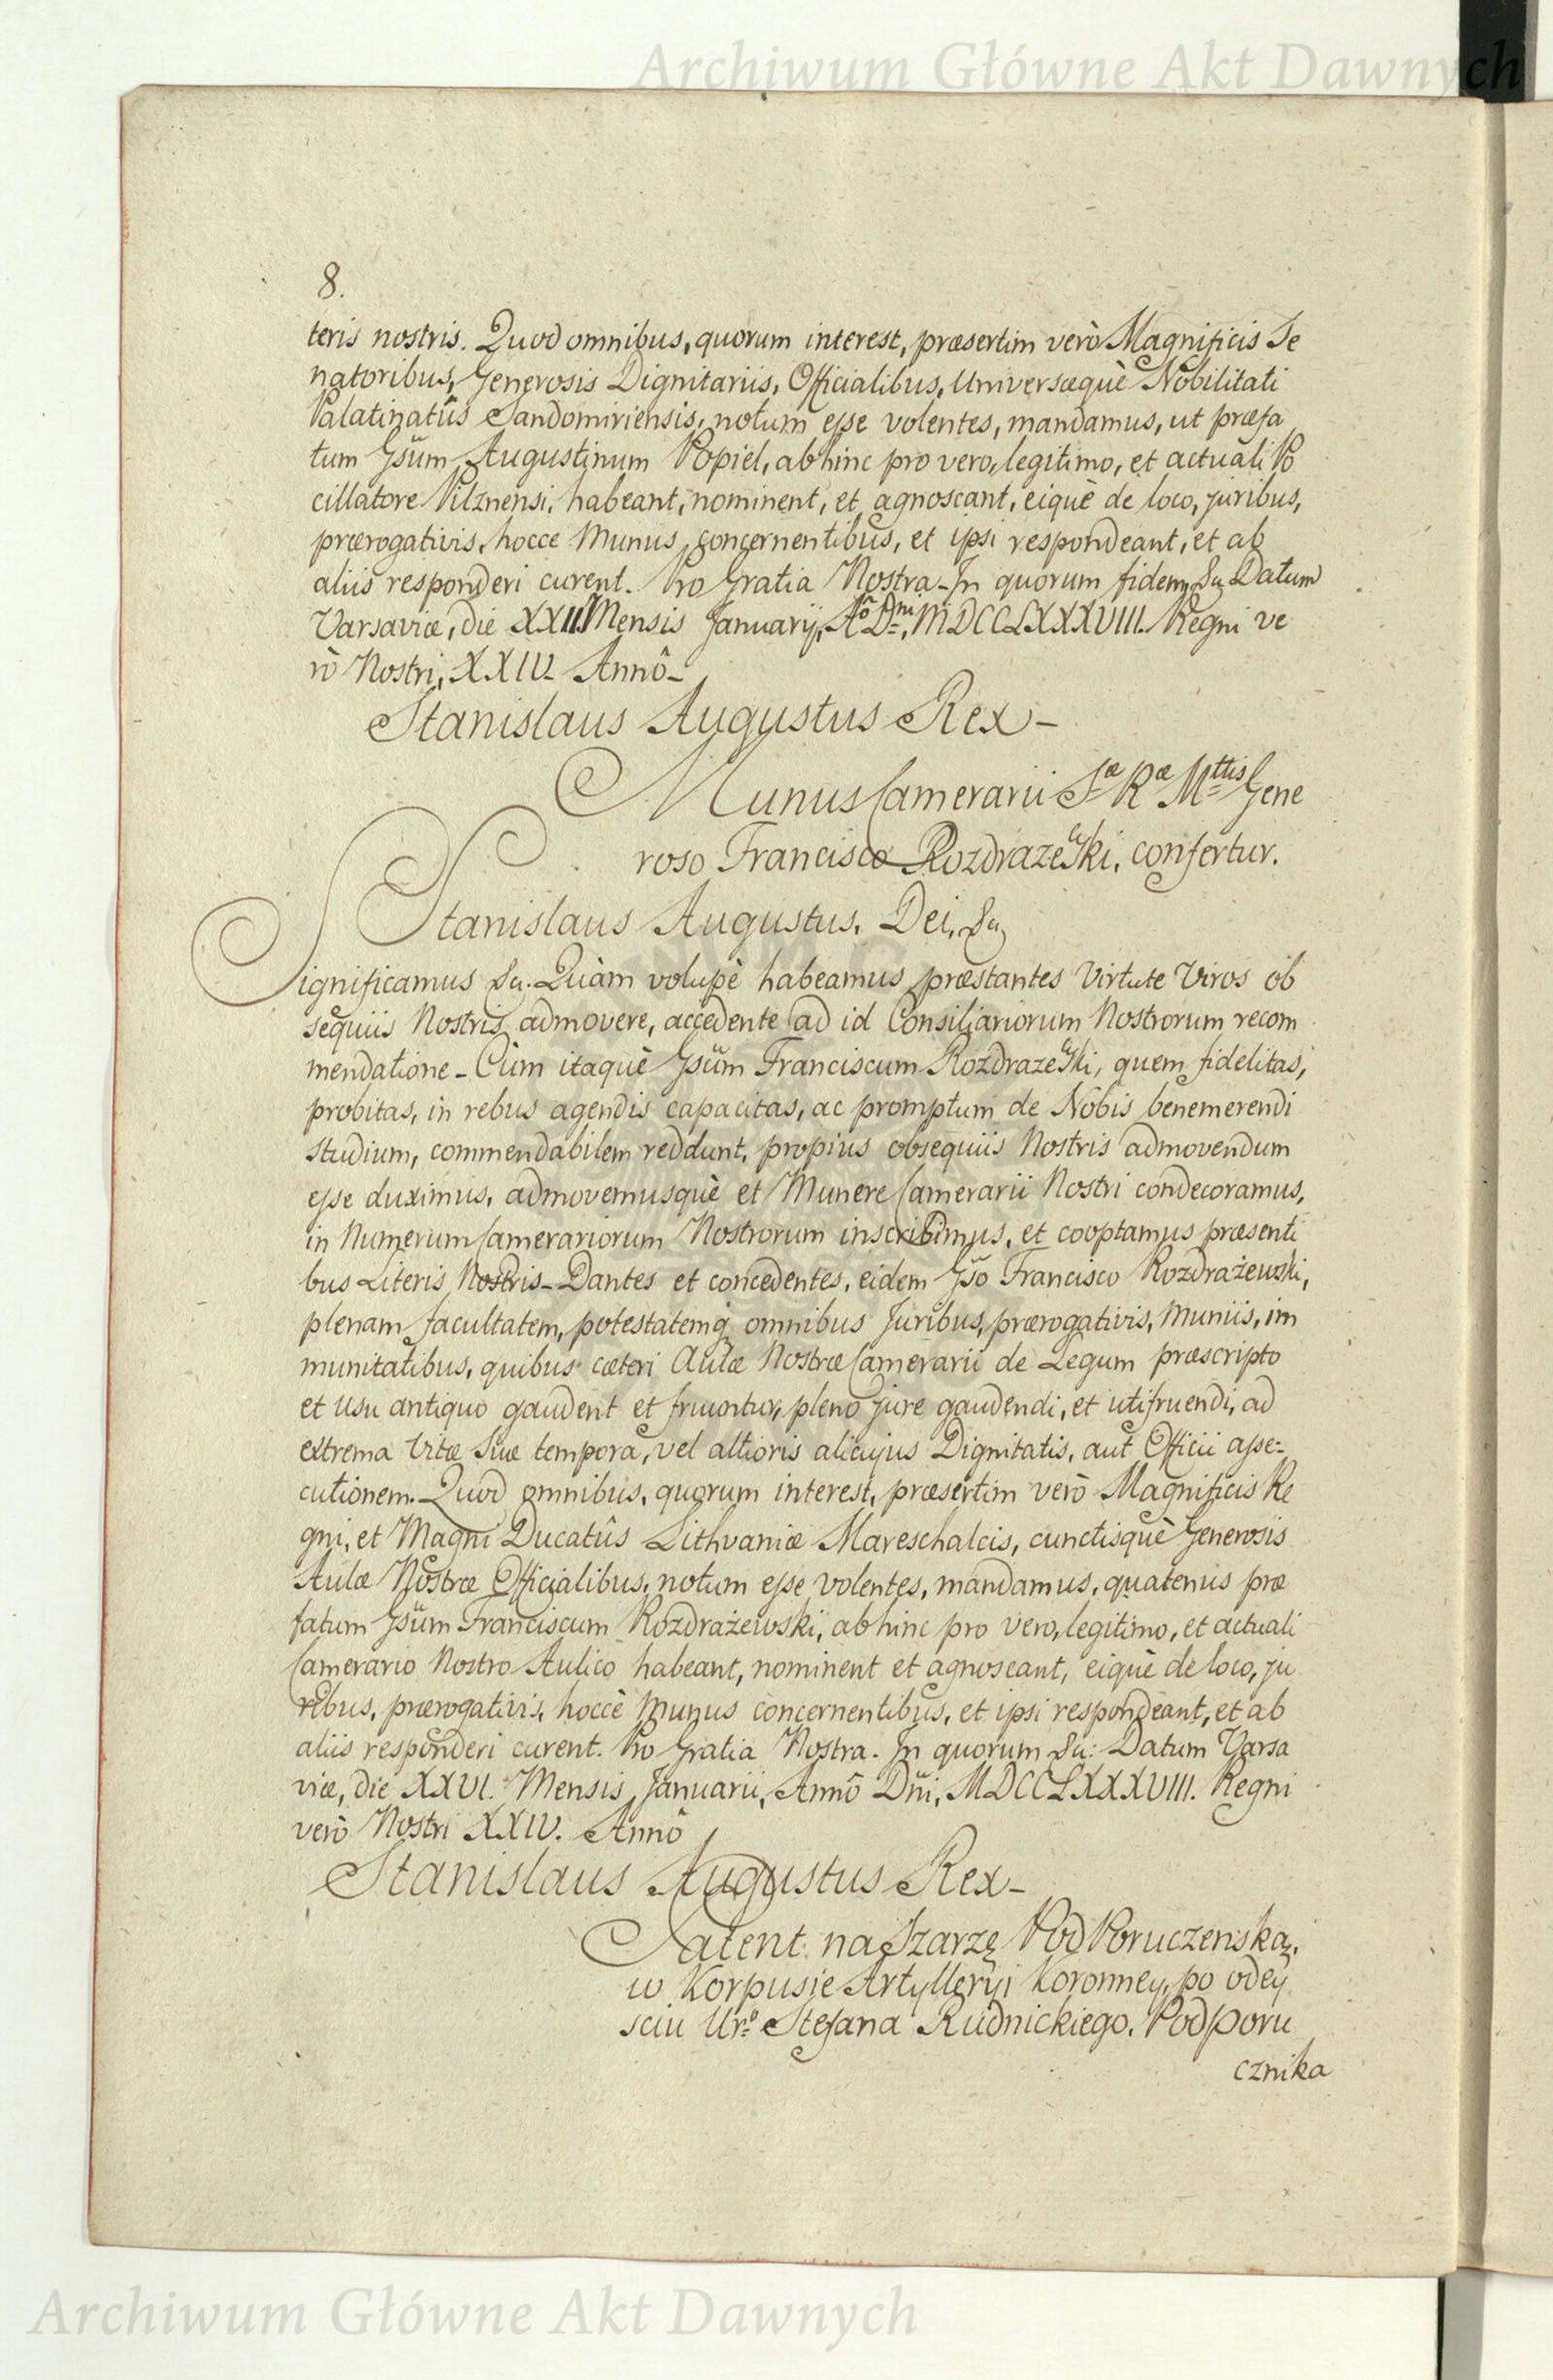 Archiwum Główne Akt Dawnych
8.
teris nostris. Quod omnibus, quorum interest, præsertim verò Magnificis Se
natoribus, Generosis Dignitariis, Officialibus, Universæquè Nobilitati
Palatinatûs Sandomiriensis, notum esse volentes, mandamus, ut præfa
tum Gsûm Augustinum Popiel, abhinc pro vero, legitimo, et actuali Po
cillatore Pilznensi, habeant, nominent, et agnoscant, eiquè de loco, juribus,
prærogativis, hocce Munus concernentibus, et ipsi respondeant, et ab
aliis responderi curent. Pro Gratia Nostra_In quorum fidem, &c, Datum
Varsaviæ, die XXII Mensis Januarij, Aô Dni, MDCCLXXXVIII. Regni ve
rò Nostri, XXIV_ Annô_
Stanislaus Augustus Rex_
Munus Camerarii Sæ Ræ Mttis Gene
roso Francisco Rozdrazewski, confertur.
Stanislaus Augustus, Dei, &c,
Significamus &c. Quàm volupè habeamus præstantes Virtute Viros ob
sequiis Nostris admovere, accedente ad id Consiliariorum Nostrorum recom
mendatione_ Cùm itaquè Gsûm Franciscum Rozdrazewski, quem fidelitas,
probitas, in rebus agendis capacitas, ac promptum de Nobis benemerendi
studium, commendabilem reddunt, propius obsequiis Nostris admovendum
esse duximus, admovemusquè et Munere Camerarii Nostri condecoramus,
in Numerum Camerariorum Nostrorum inscribimus, et cooptamus præsenti
bus Literis Nostris_Dantes et concedentes, eidem Gsô Francisco Rozdrażewski,
plenam facultatem, potestatemq omnibus Juribus, prærogativis, Muniis, im
munitatibus, quibus cæteri Aulæ Nostræ Camerarii de Legum præscripto
et usu antiquo gaudent et fruuntur, pleno jure gaudendi, et utifruendi, ad
extrema Vitæ Suæ tempora, vel altioris alicujus Dignitatis, aut Officii asse=
cutionem. Quod omnibus, quorum interest, præsertim verò Magnificis Re
gni, et Magni Ducatûs Lithvaniæ Mareschalcis, cunctisquè Generosis
Aulæ Nostræ Officialibus, notum esse volentes, mandamus, quatenus præ
fatum Gsûm Franciscum Rozdrażewski, abhinc pro vero, legitimo, et actuali
Camerario Nostro Aulico habeant, nominent et agnoscant, eiquè de loco, ju
ribus, prærogativis, hoccè Munus concernentibus, et ipsi respondeant, et ab
aliis responderi curent. Pro Gratia Nostra. In quorum &c: Datum Varsa
viæ, die XXVI. Mensis Januarii, Annô Dni, MDCCLXXXVIII. Regni
verò Nostri XXIV. Annô
Stanislaus Augustus Rex_
Patent na Szarzę PodPoruczenską,
w Korpusie Artylleryi Koronney, po odey
sciu Uro Stefana Rudnickiego, Podporu
cznika
Archiwum Główne Akt Dawnych